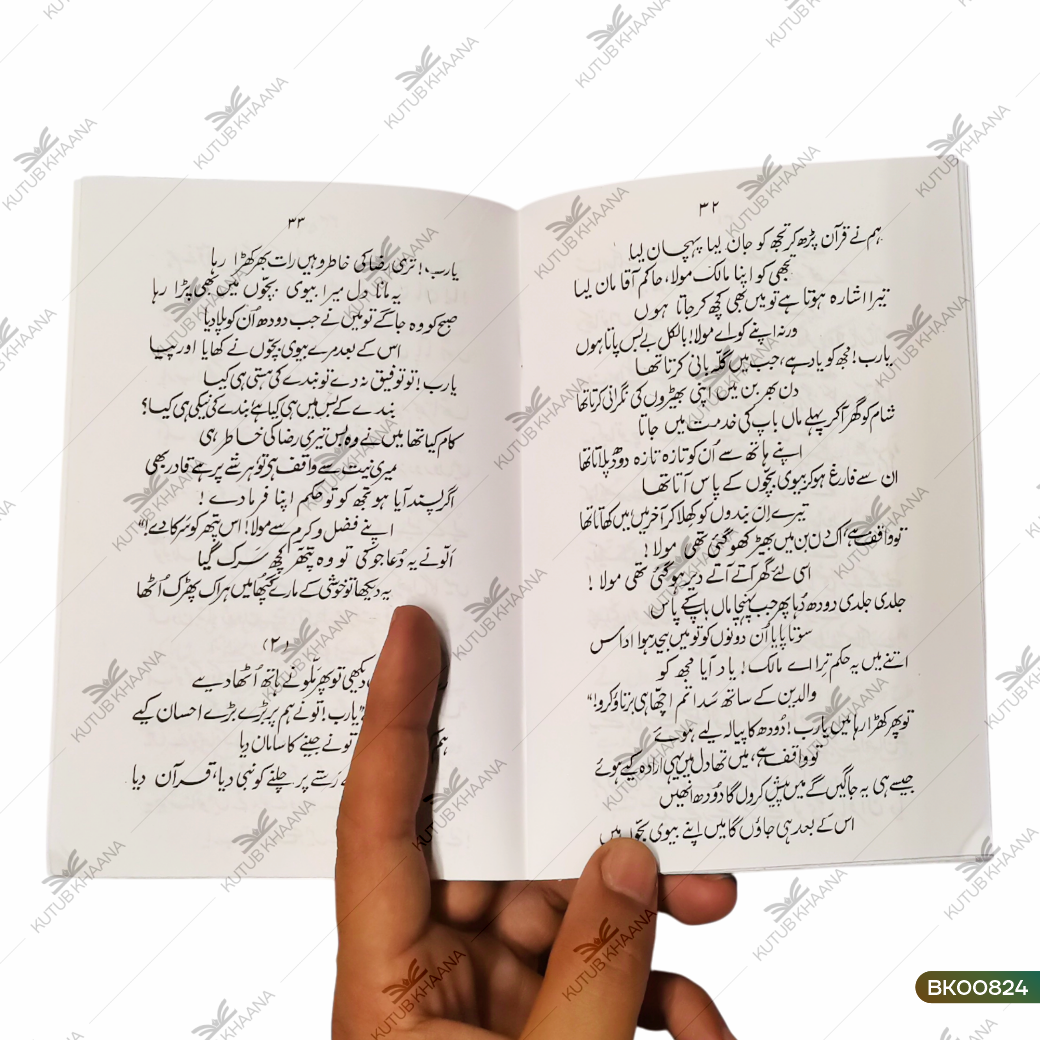 ۳۲
ہم نے قرآن پڑھ کر تجھ کو جان لیا پہچان لیا
تجھی کو اپنا مالک مولا، حاکم آقا مان لیا
تیرا اشارہ ہوتا ہے تو میں بھی کچھ کر جاتا ہوں
ورنہ اپنے کو اے مولا! بالکل بے بس پاتا ہوں
یارب! مجھ کو یاد ہے، جب میں گلّہ بانی کرتا تھا
دن بھر بن میں اپنی بھیڑوں کی نگرانی کرتا تھا
شام کو گھر آ کر پہلے ماں باپ کی خدمت میں جاتا
اپنے ہاتھ سے اُن کو تازہ تازہ دودھ پلاتا تھا
ان سے فارغ ہو کر بیوی بچّوں کے پاس آتا تھا
تیرے اِن بندوں کو کھلا کر آخر میں میں کھاتا تھا
تو واقف ہے، اک دن بن میں بھیڑ کھو گئی تھی مولا!
اسی لئے گھر آتے آتے دیر ہو گئی تھی مولا!
جلدی جلدی دودھ دُہا پھر جب پہنچا ماں باپ کے پاس
سوتا پایا اُن دونوں کو تو میں بیحد ہوا اداس
اتنے میں یہ حکم ترا اے مالک! یاد آیا مجھ کو
والدین کے ساتھ سدا تم اچّھا ہی برتاؤ کرو!“
تو پھر کھڑا رہا میں یارب! دُودھ کا پیالہ لیے ہوئے
تو واقف ہے، میں تھا دل میں یہی ارادہ کیے ہوئے
جیسے ہی یہ جاگیں گے میں پیش کروں گا دُودھ انھیں
اس کے بعد ہی جاؤں گا میں اپنے بیوی بچّوں میں
۳۳
یارب! تری رضا کی خاطر وہیں رات بھر کھڑا رہا
یہ مانا دل میرا بیوی بچّوں میں بھی پڑا رہا
صبح کو وہ جاگے تو میں نے جب دودھ اُن کو پلا دیا
اس کے بعد مرے بیوی بچّوں نے کھایا اور پیا
یارب! تو توفیق نہ دے تو بندے کی ہستی ہی کیا
بندے کے بس میں ہی کیا ہے! بندے کی نیکی ہی کیا؟
کام کیا تھا میں نے وہ بس تیری رضا کی خاطر ہی
میری نیت سے واقف ہی تو ہر شے پر ہے قادر بھی
اگر پسند آیا ہو تجھ کو تو حکم اپنا فرما دے!
اپنے فضل و کرم سے مولا! اس پتھر کو سرکا دے!“
اَتو نے یہ دُعا جو کی تو وہ پتھر کچھ سَرک گیا
یہ دیکھا تو خوشی کے مارے گپھا میں ہر اک پھڑک اُٹھا
(۲)
دیکھی تو پھر مَلّو نے ہاتھ اُٹھا دیے
”یارب! تو نے ہم پر بڑے بڑے احسان کیے
تو نے جینے کا سامان دیا
رَستے پر چلنے کو نبی دیا، قرآن دیا
KUTUB KHAANA
BK00824